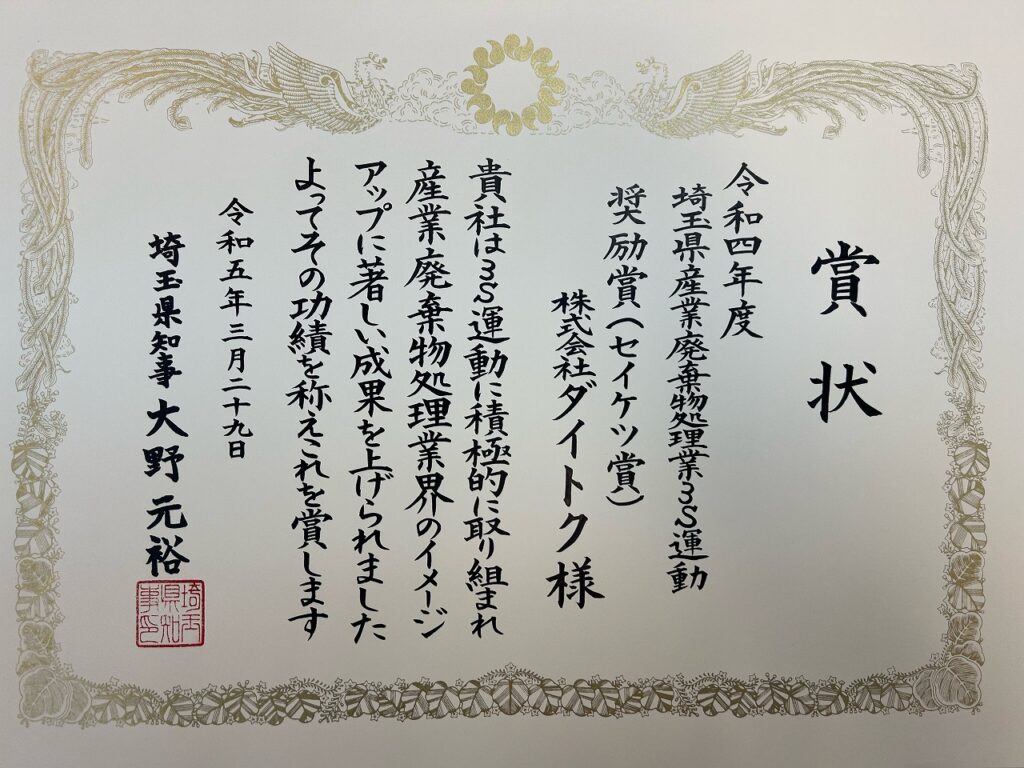 賞状
令和四年度
埼玉県産業廃棄物処理業3S運動
奨励賞(セイケツ賞)
株式会社ダイトク様
貴社は3S運動に積極的に取り組まれ
産業廃棄物処理業界のイメージ
アップに著しい成果を上げられました
よってその功績を称えこれを賞します
令和五年三月二十九日
埼玉県知事 大野元裕
埼玉県知事印